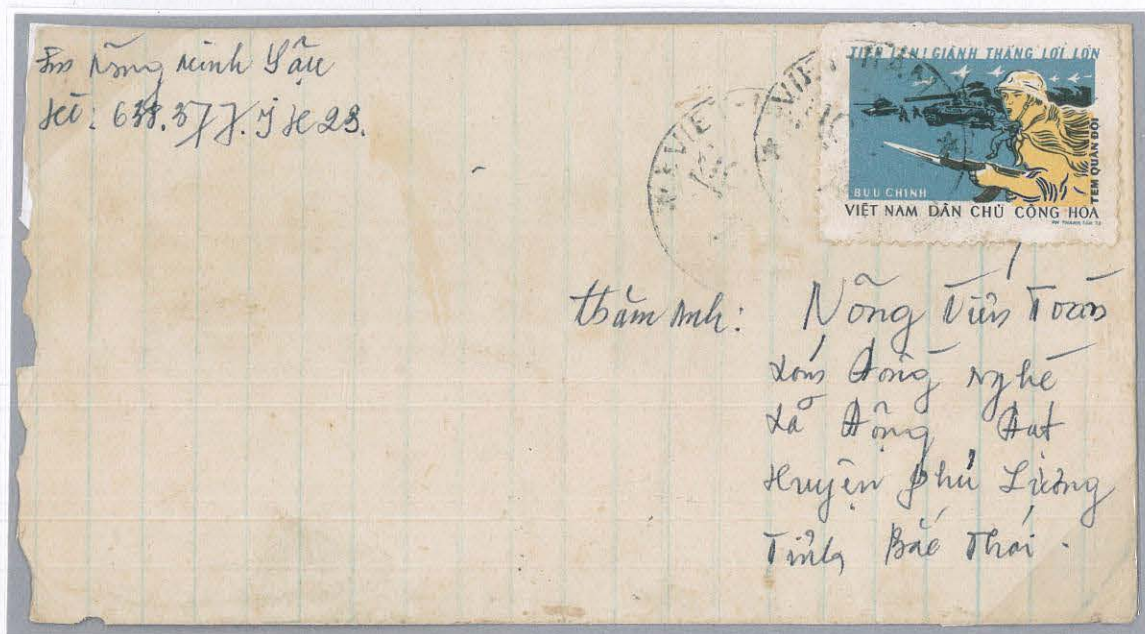 Em Nông Minh Sậu
Ht: 638.577.JH23.
TIẾN LÊN! GIÀNH THẮNG LỢI LỚN
TEM QUÂN ĐỘI
BƯU CHÍNH
VIỆT NAM DÂN CHỦ CỘNG HÒA
VIE
VIE
thăm Anh: Nông Tiến Toán
Xóm Đồng Nghè
Xã Động Đạt
Huyện Phú Lương
Tỉnh Bắc Thái.